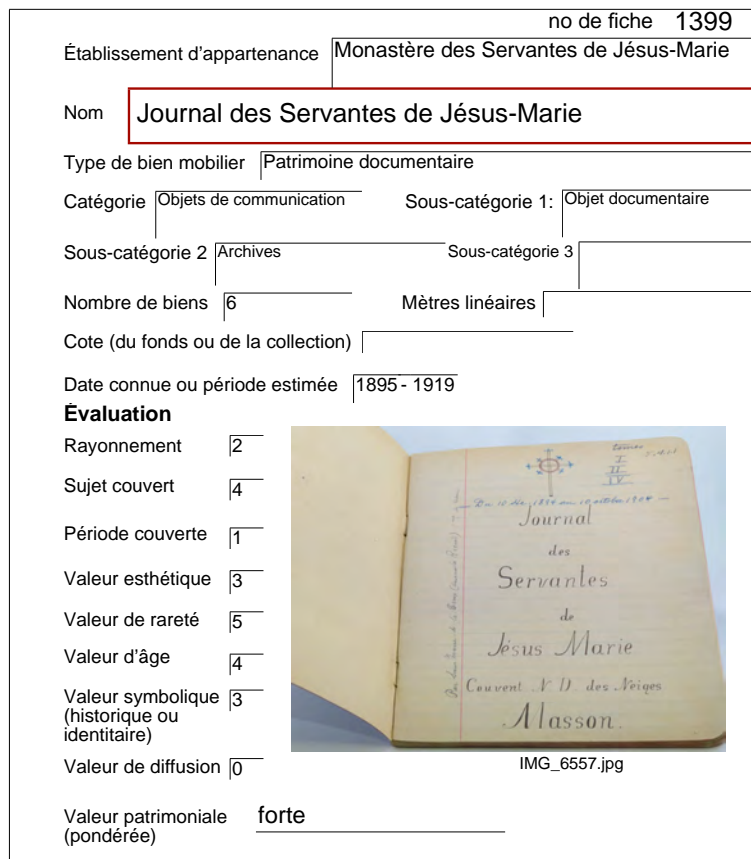 no de fiche 1399
Établissement d'appartenance Monastère des Servantes de Jésus-Marie
Nom Journal des Servantes de Jésus-Marie
Type de bien mobilier Patrimoine documentaire
Catégorie Objets de communication Sous-catégorie 1: Objet documentaire
Sous-catégorie 2 Archives Sous-catégorie 3
Nombre de biens 6 Mètres linéaires
Cote (du fonds ou de la collection)
Date connue ou période estimée 1895 - 1919
Évaluation
Rayonnement 2
Sujet couvert 4
Période couverte 1
Valeur esthétique 3
Valeur de rareté 5
Valeur d'âge 4
Valeur symbolique 3
(historique ou
identitaire)
Valeur de diffusion 0
Valeur patrimoniale forte
(pondérée)
tomes
I
II
IV
Journal
des
Servantes
de
Jésus Marie
Couvent N. D. des Neiges
Masson.
IMG_6557.jpg